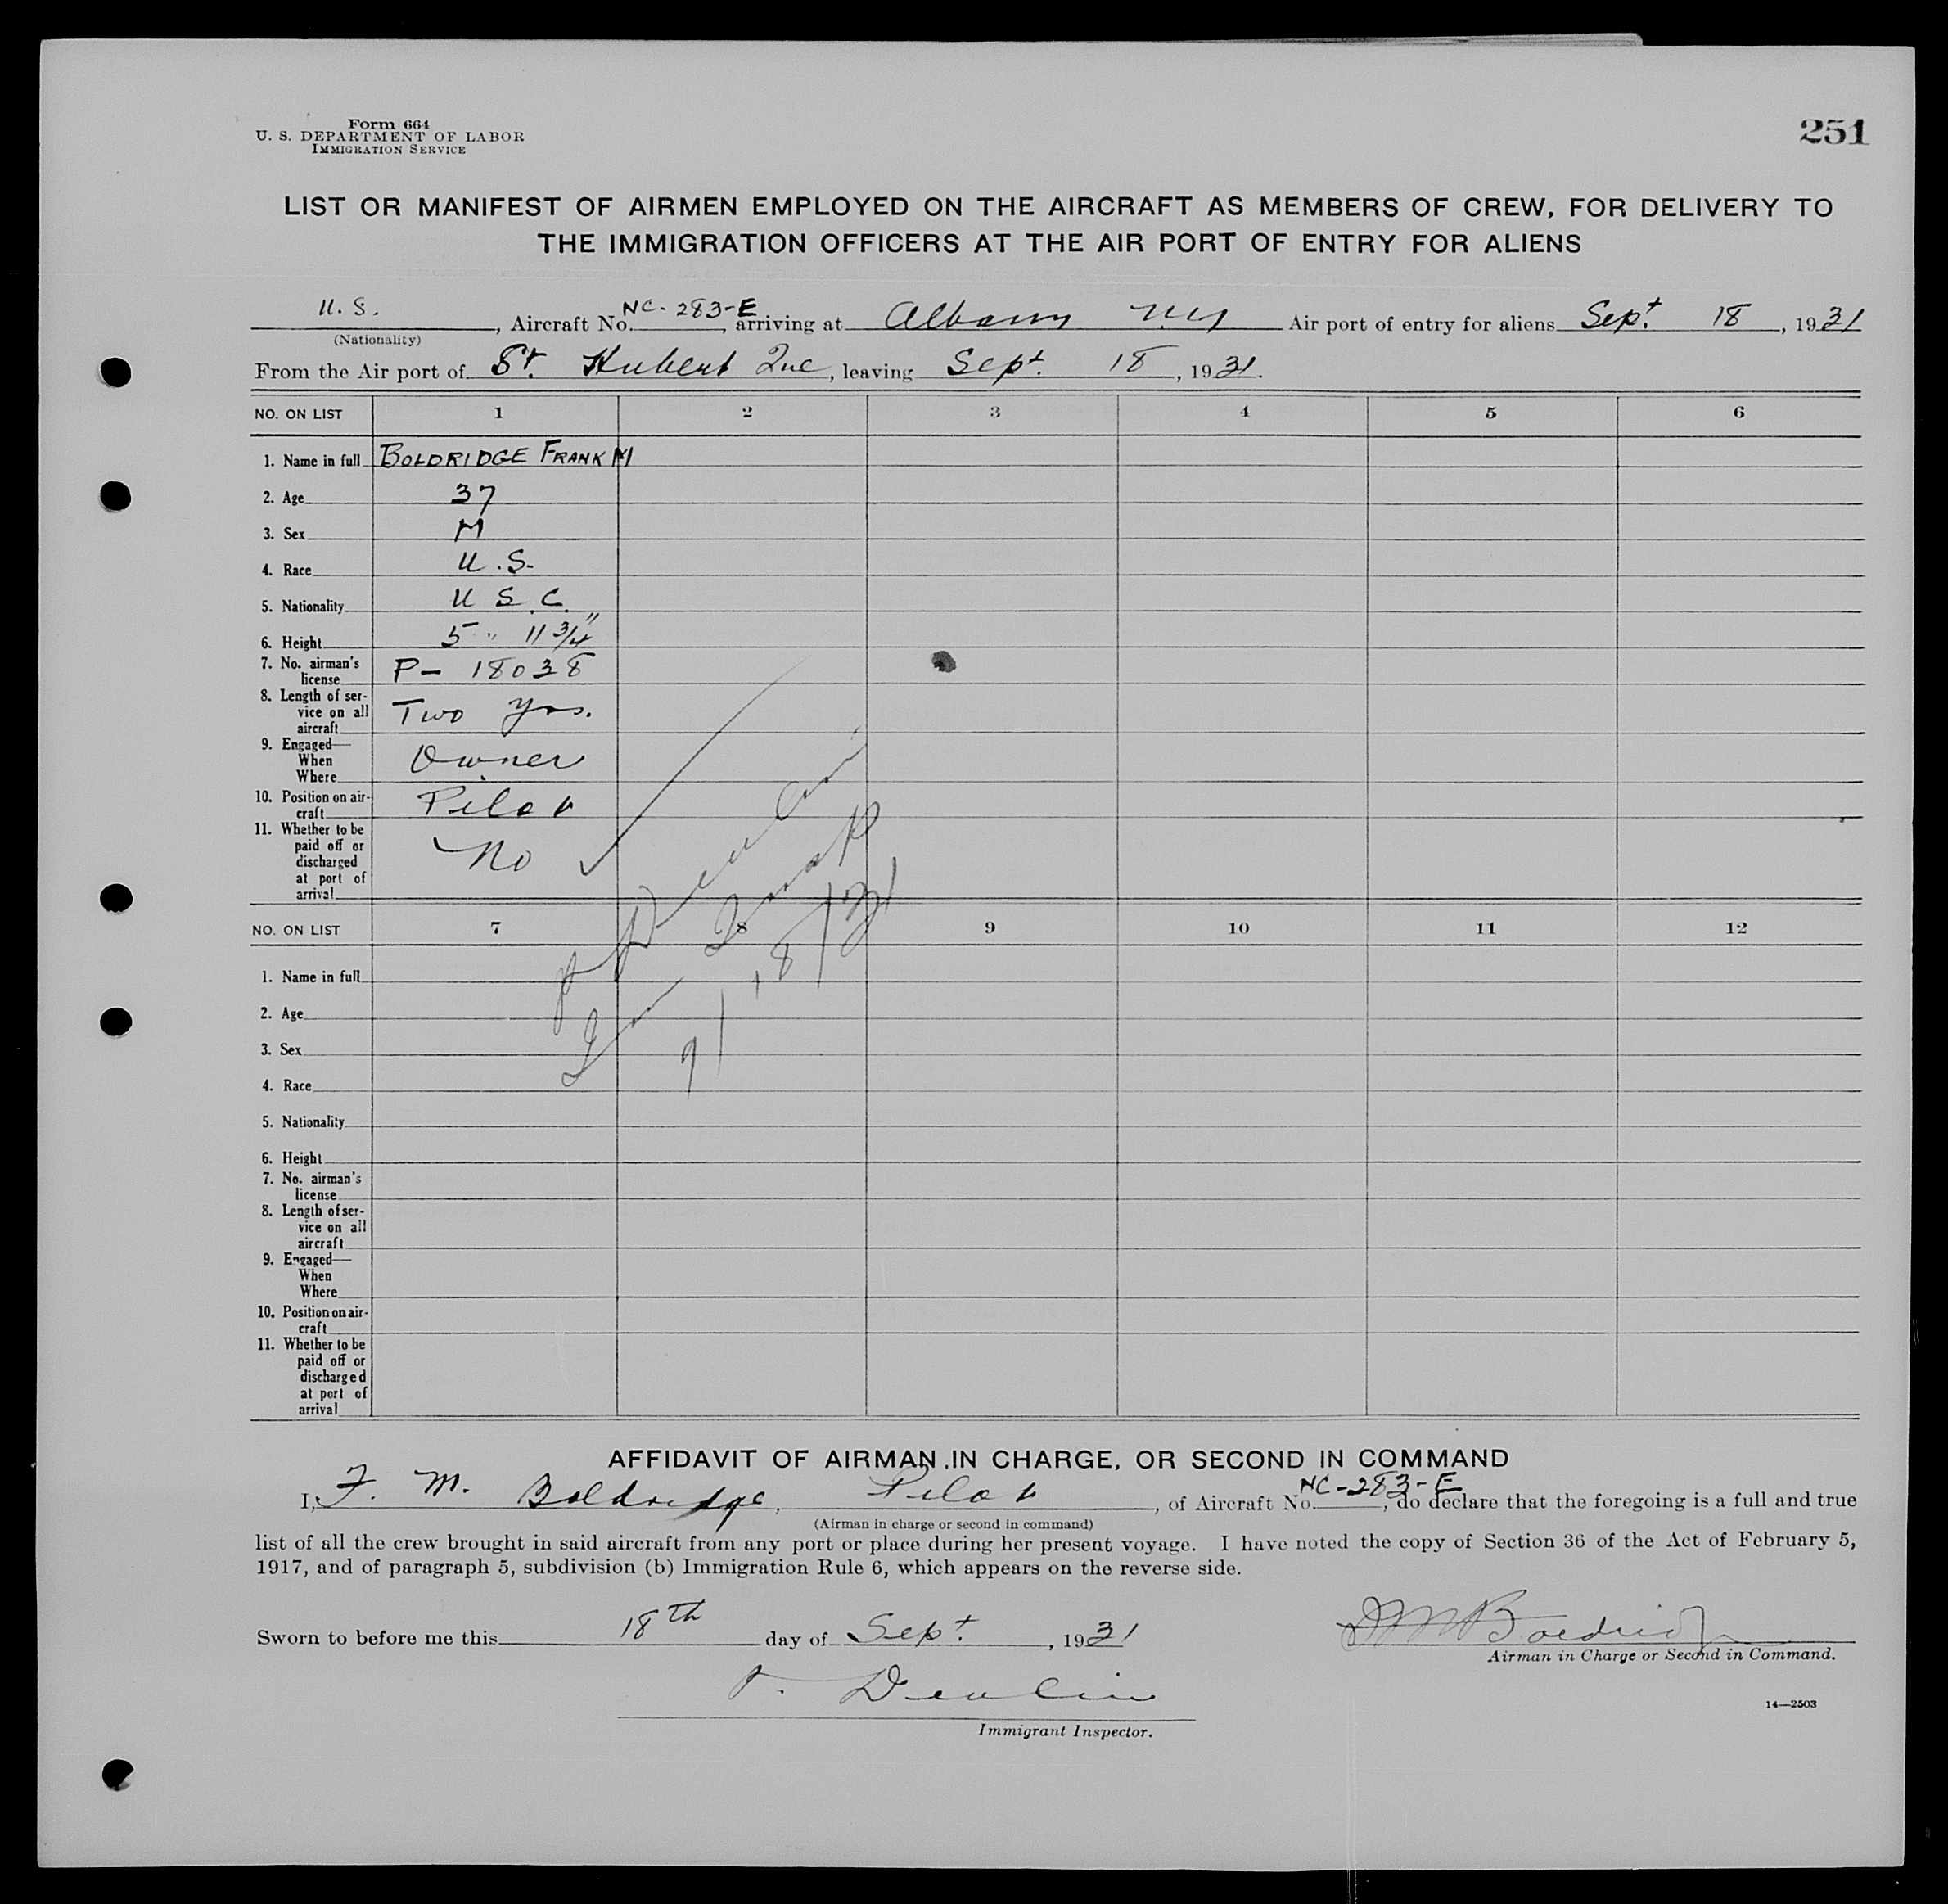 Form 664
U. S. DEPARTMENT OF LABOR
IMMIGRATION SERVICE
251
LIST OR MANIFEST OF AIRMEN EMPLOYED ON THE AIRCRAFT AS MEMBERS OF CREW, FOR DELIVERY TO
THE IMMIGRATION OFFICERS AT THE AIR PORT OF ENTRY FOR ALIENS
U. S. , Aircraft No. NC-283-E, arriving at Albany NY Air port of entry for aliens Sept. 18, 1931
(Nationality)
From the Air port of St. Hubert Que, leaving Sept. 18, 1931.
NO. ON LIST 1 2 3 4 5 6
1. Name in full BOLDRIDGE FRANK M
2. Age 37
3. Sex M
4. Race U.S.
5. Nationality U S. C.
6. Height 5 " 11 3/4"
7. No. airman's
license P- 18038
8. Length of ser-
vice on all Two yrs.
aircraft
9. Engaged—
When Owner
Where
10. Position on air-
craft Pilot
11. Whether to be
paid off or
discharged No
at port of
arrival
Devlin
9/18/31
NO. ON LIST 7 8 9 10 11 12
1. Name in full
2. Age
3. Sex
4. Race
5. Nationality
6. Height
7. No. airman's
license
8. Length of ser-
vice on all
aircraft
9. Engaged—
When
Where
10. Position on air-
craft
11. Whether to be
paid off or
discharged
at port of
arrival
AFFIDAVIT OF AIRMAN IN CHARGE, OR SECOND IN COMMAND
I, F. M. Boldridge, Pilot, of Aircraft No. NC-283-E, do declare that the foregoing is a full and true
(Airman in charge or second in command)
list of all the crew brought in said aircraft from any port or place during her present voyage. I have noted the copy of Section 36 of the Act of February 5,
1917, and of paragraph 5, subdivision (b) Immigration Rule 6, which appears on the reverse side.
Sworn to before me this 18th day of Sept., 1931
F M Boldridge
Airman in Charge or Second in Command.
Devlin
14—2503
Immigrant Inspector.